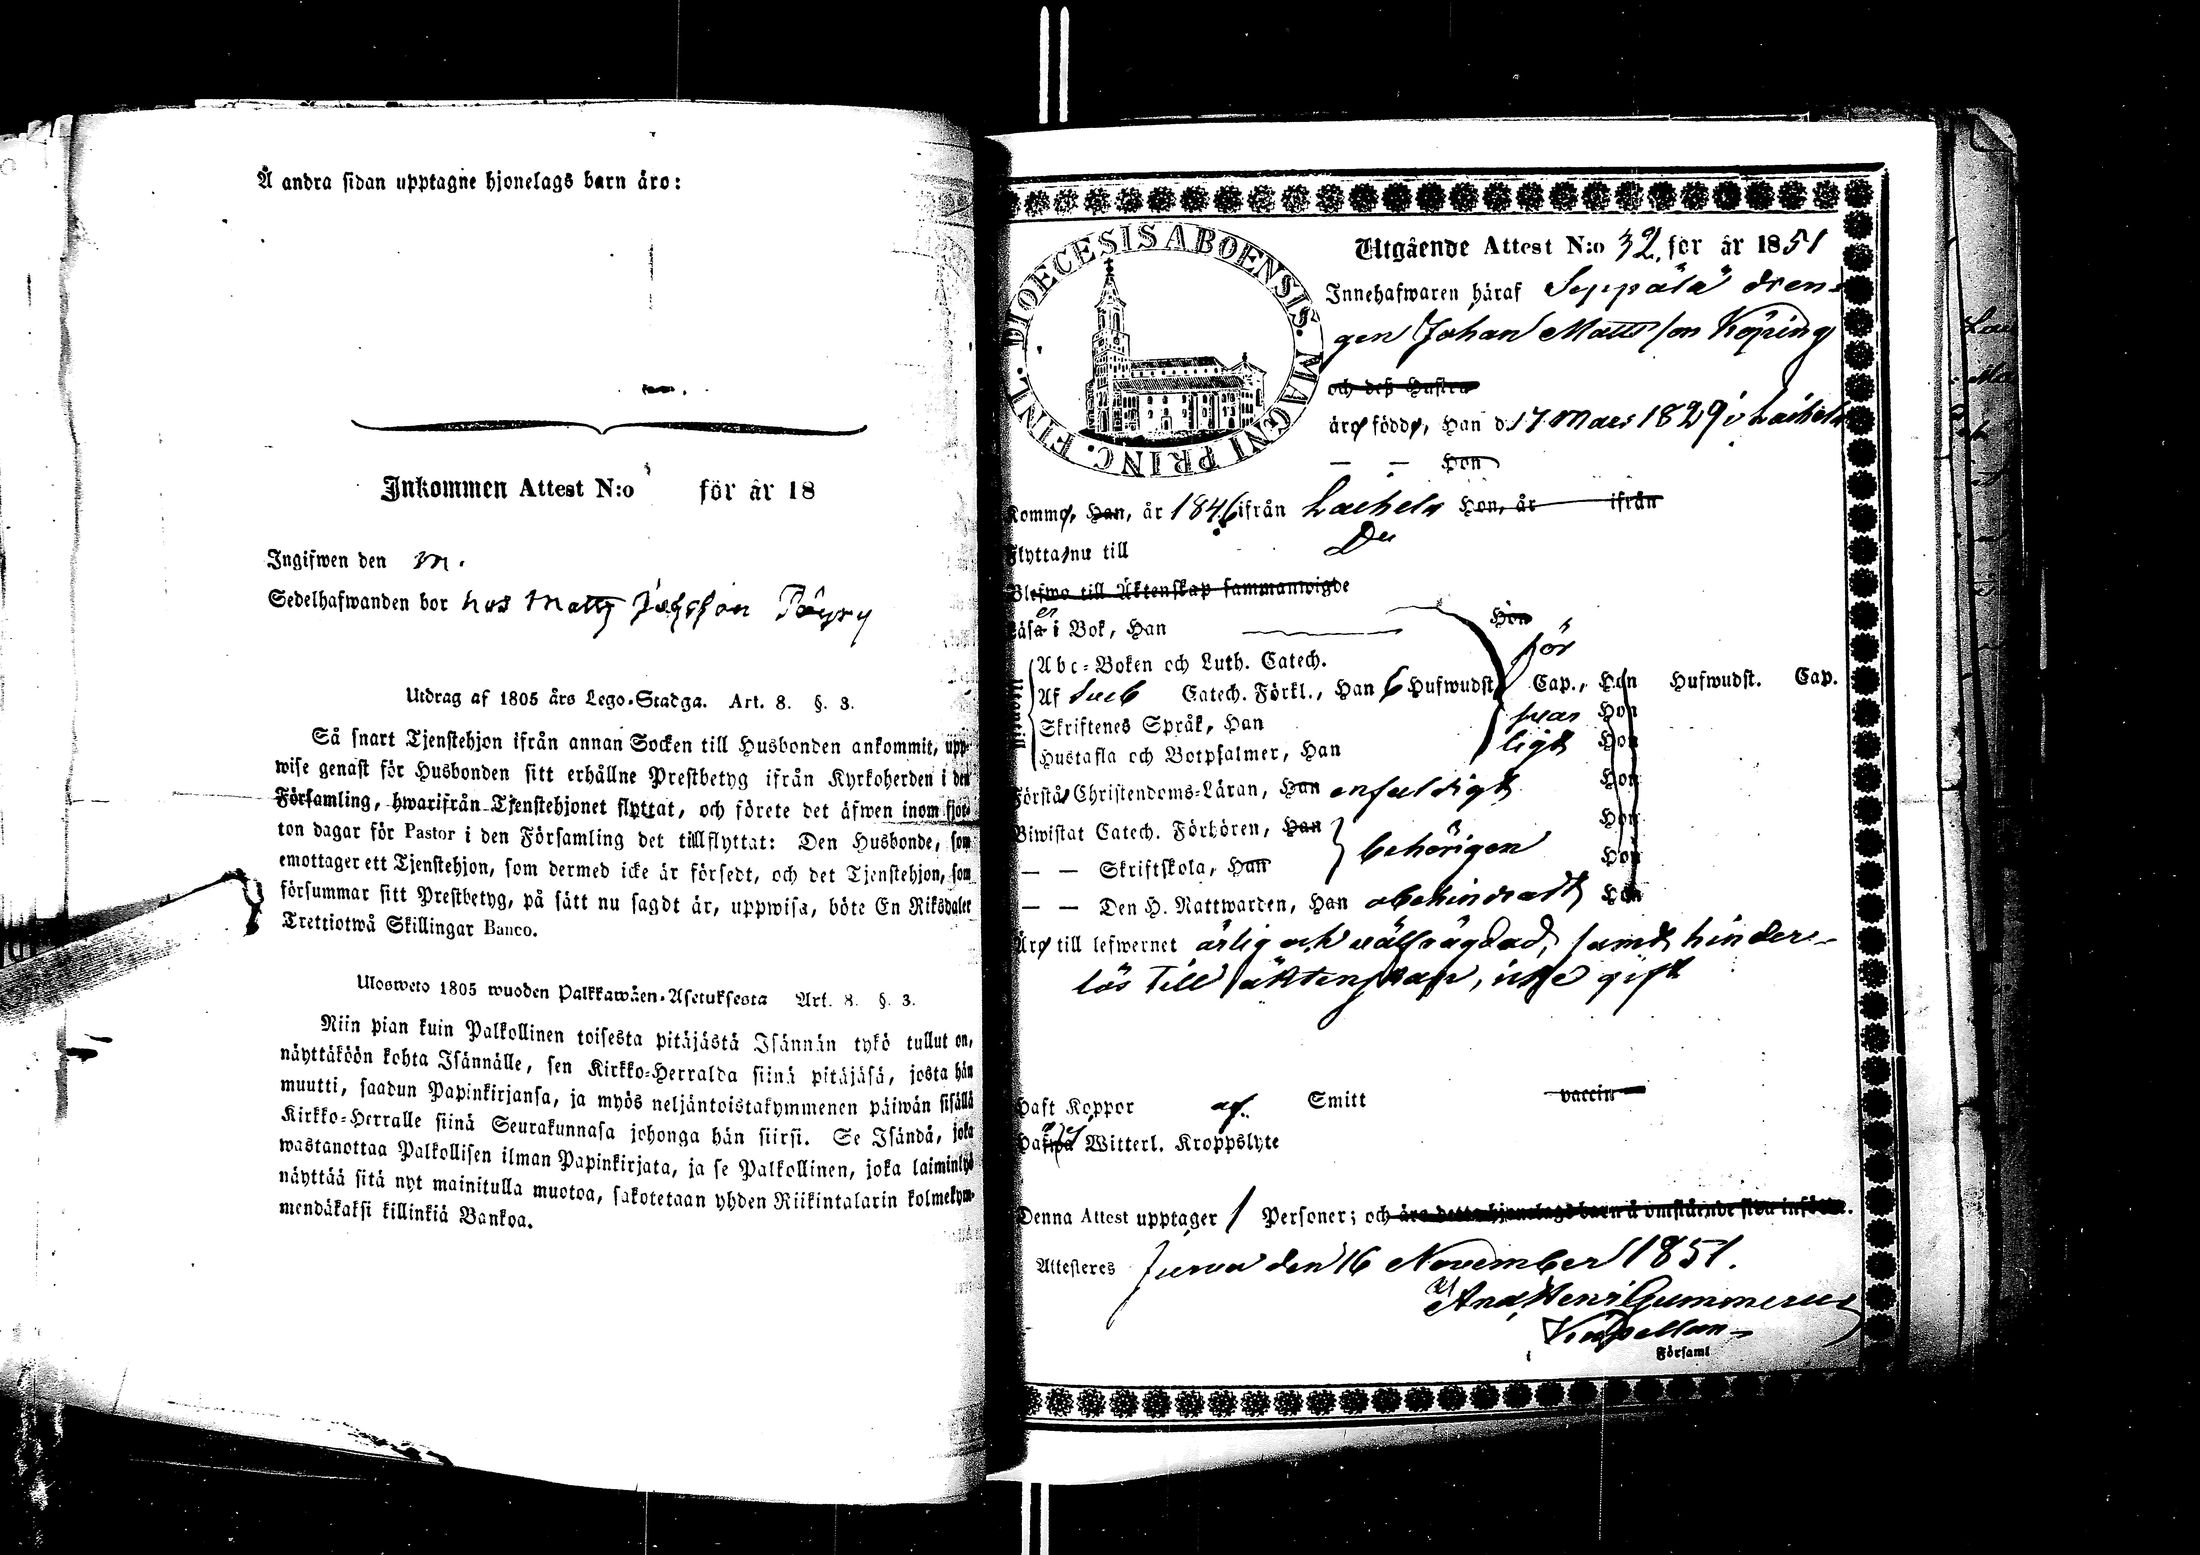 Å andra sidan upptagne hjonelags barn äro:
Inkommen Attest N:o för år 18
Ingifwen den
Sedelhafwanden bor hos Matts
Utdrag af 1805 års Lego-Stadga. Art. 8. §. 3.
Så snart Tjenstehjon ifrån annan Socken till Husbonden ankommit, upp-
wise genast för Husbonden sitt erhållne Prestbetyg ifrån Kyrkoherden i den
Församling, hwarifrån Tjenstehjonet flyttat, och förete det äfwen inom fjor-
ton dagar för Pastor i den Församling det tillflyttat: Den Husbonde, som
emottager ett Tjenstehjon, som dermed icke är försedt, och det Tjenstehjon, som
försummar sitt Prestbetyg, på sätt nu sagdt är, uppwisa, böte En Riksdaler
Trettiotwå Skillingar Banco.
Ulosweto 1805 wuoden Palkkawäen-Asetuksesta Art. 8. §. 3.
Niin pian kuin Palkollinen toisesta pitäjästä Isännän tykö tullut on,
näyttäköön kohta Isännälle, sen Kirkko-Herralda siinä pitäjäsä, josta hän
muutti, saadun Papinkirjansa, ja myös neljäntoistakymmenen päiwän sisällä
Kirkko-Herralle siinä Seurakunnasa johonga hän siirsi. Se Isändä, joka
wastanottaa Palkollisen ilman Papinkirjata, ja se Palkollinen, joka laiminlyö
näyttää sitä nyt mainitulla muotoa, sakotetaan yhden Riikintalarin kolmekym-
mendäkaksi killinkiä Bankoa.
DIOECESIS ABOENSIS. MAGNI PRINC. FINL.
Utgående Attest N:o 32. för år 1851
Innehafwaren häraf Seppälä dren-
gen Johan Mattsson Köping
och deß Hustru
äro födde, Han d. 17 Mars 1829 i Laihela
— — Hon
Komme, Han, år 1846 ifrån Laihela Hon, år ifrån
Flytta nu till
Blefwo till Äktenskap sammanwigde
Läsa i Bok, Han Hon
Abc-Boken och Luth. Catech. för
Af Sueb Catech. Förkl., Han 6 Hufwudst. Cap., Hon Hufwudst. Cap.
Skriftenes Språk, Han swar Hon
Hustafla och Botpsalmer, Han ligt Hon
Förstå Christendoms-Läran, Han enfaldigt Hon
Biwistat Catech. Förhören, Han Hon
— — Skriftskola, Han behörigen Hon
— — Den H. Nattwarden, Han obehindradt Hon
Äro till lefwernet ärlig och wälfrägdad, samt hinder-
lös till äktenskap, icke gift
Haft Koppor Smitt vaccin
Hafwa Witterl. Kroppslyte
Denna Attest upptager 1 Personer; och äro detta hjonelags barn å omstående sida införde.
Attesteres Jurva den 16 November 1851.
And. Henr. Gummerus
Kapellan
Församl